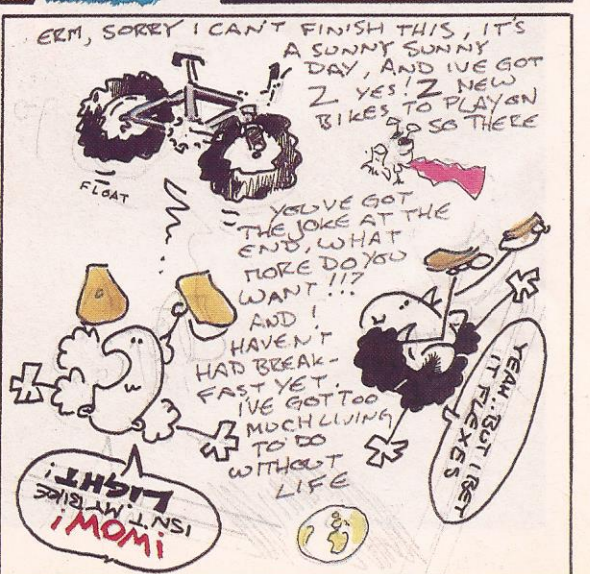 ERM, SORRY I CAN'T FINISH THIS, IT'S
A SUNNY SUNNY
DAY, AND IVE GOT
2 YES! 2 NEW
BIKES TO PLAY ON
SO THERE
FLOAT
YOU'VE GOT
THE JOKE AT THE
END, WHAT
MORE DO YOU
WANT !!?
AND I
HAVEN'T
HAD BREAK-
FAST YET.
I'VE GOT TOO
MUCH LIVING
TO DO
WITHOUT
LIFE
WOW!
ISN'T MY BIKE
LIGHT!
YEAH. BUT I BET
IT FLEXES